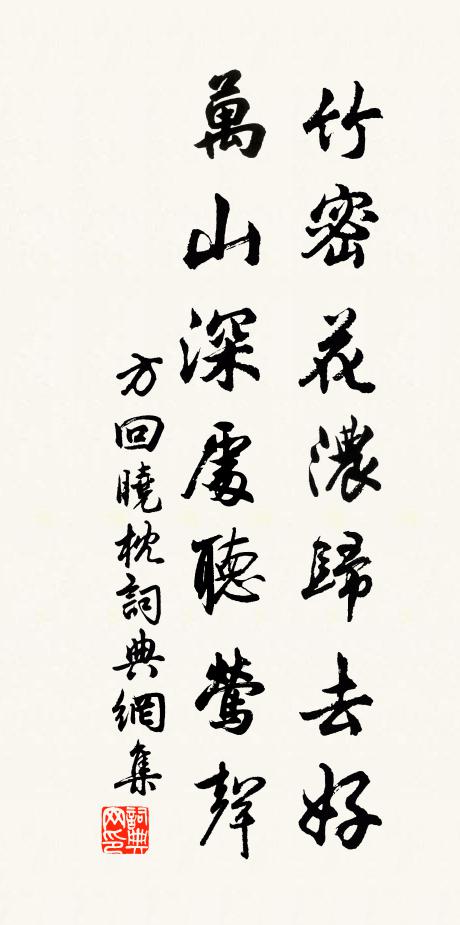 竹密花濃歸去好
萬山深處聽鶯聲
方回曉枕詞典網集
詞典网印